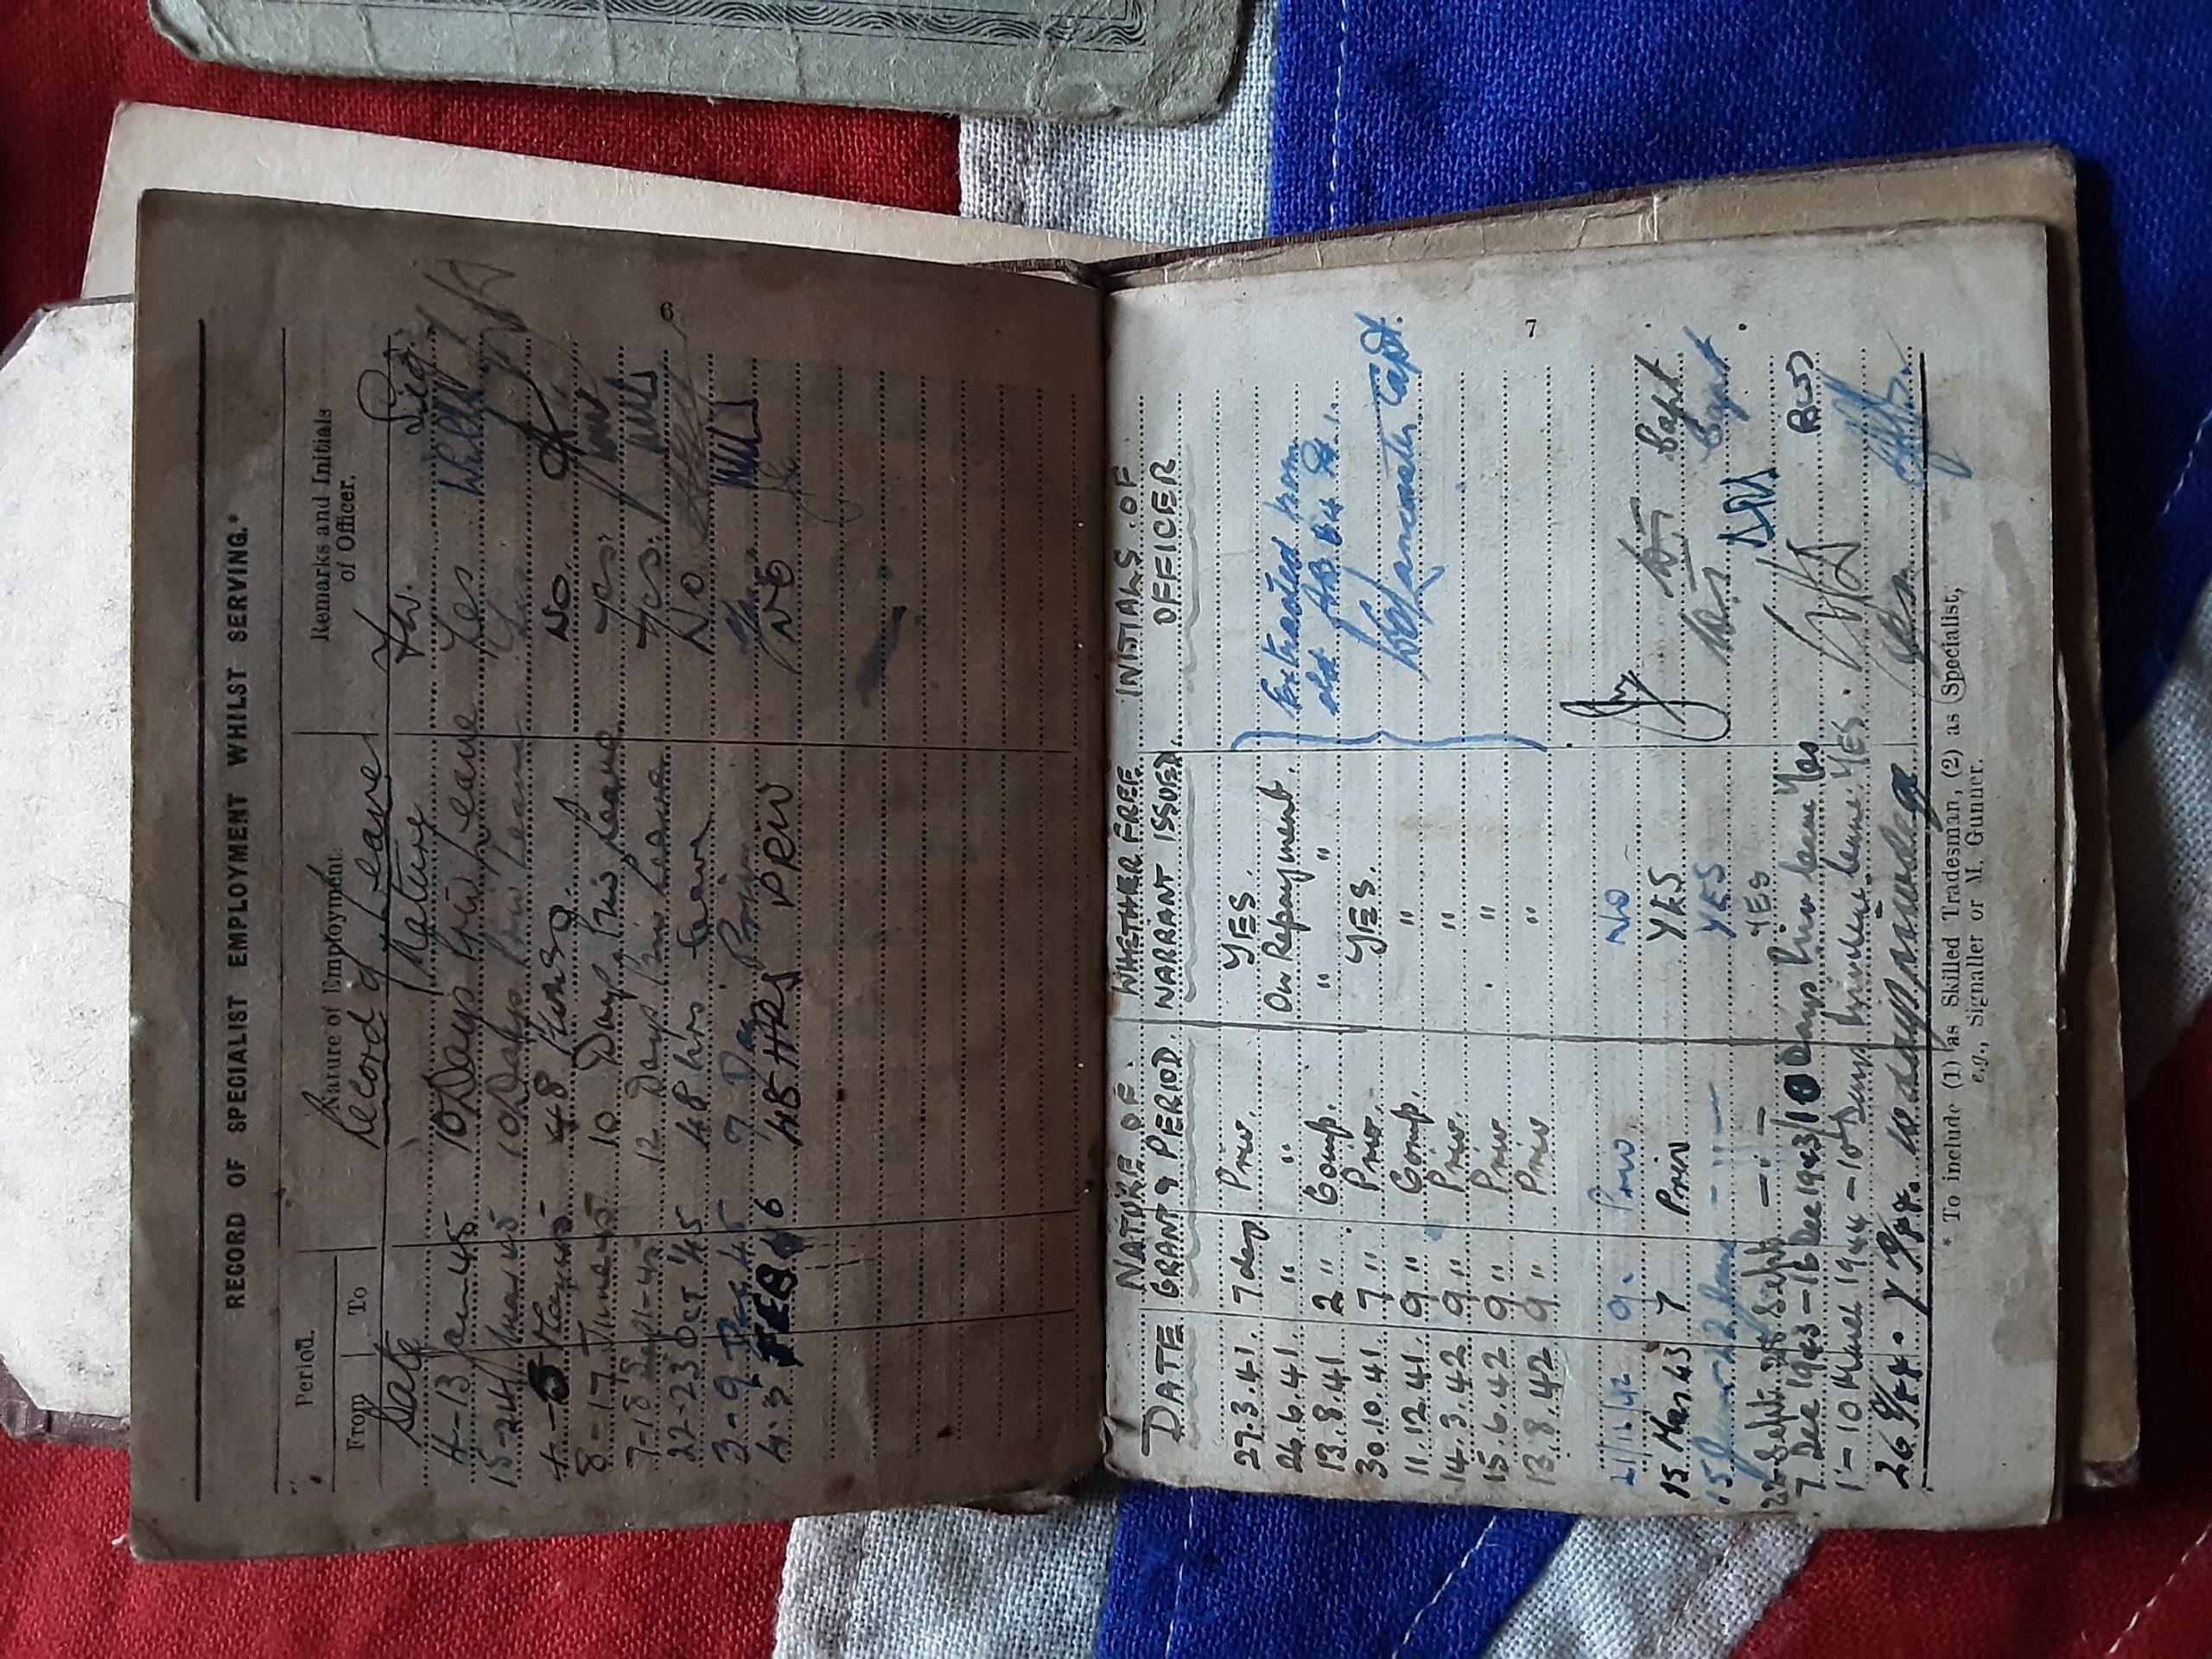 RECORD OF SPECIALIST EMPLOYMENT WHILST SERVING.*
Period. Nature of Employment. Remarks and Initials of Officer.
From To
Record of Leave
Date Nature F.W. Sig.
4-13 Jan 45 10 Days Priv Leave Yes
15-24 Mar 45 10 Days Priv Leave Yes
4-5 May 45 48 Hours No.
8-17 June 45 10 Days Priv Leave Yes.
7-18 Sept 45 12 Days Priv Leave Yes.
22-23 Oct 45 48 hrs Leave No
3-9 Dec 45 7 Days Priv
4-5 FEB 46 48 HRS PRIV NO
6
DATE NATURE OF GRANT & PERIOD. WHETHER FREE WARRANT ISSUED. INITIALS OF OFFICER
27.3.41. 7 days Priv. YES. Extracted from
26.6.41. " " On Repayment. old AB 64
13.8.41 2 " Comp. " "
30.10.41 7 " Priv. YES. Capt.
11.12.41 9 " Comp. "
14.3.42 9 " Priv. "
15.6.42 9 " Priv "
13.8.42 9 " Priv "
21/12/42 9. Priv NO
15 Mar 43 7 Priv YES Capt
15 June 22 June - " - YES Capt
22 Sept 28 Sept YES
7 Dec 1943 - 16 Dec 1943 10 Days Priv Leave Yes
1 - 10 March 1944 - 10 Days Privilege Leave YES.
10 days privilege
* To include (1) as Skilled Tradesman, (2) as Specialist,
e.g., Signaller or M. Gunner.
7